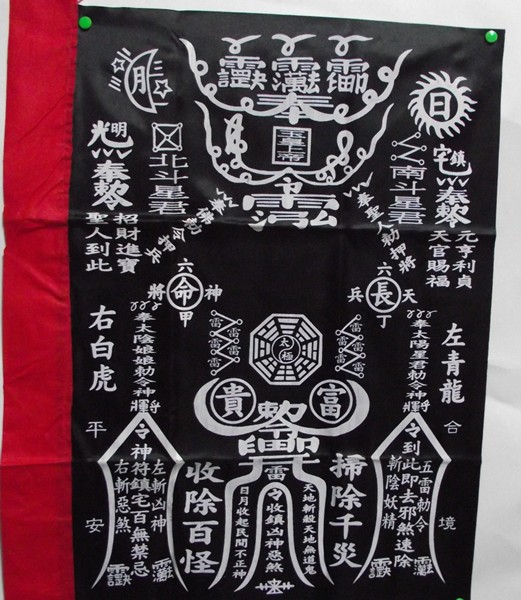 日
月
奉
玉皇上帝
南斗星君
北斗星君
鎮宅
光明
奉敕
奉敕
元亨利貞
天官賜福
招財進寶
聖人到此
六
長
天
兵
丁
六
命
神
將
甲
左青龍
右白虎
奉太陽星君勅令神將
奉太陰娘娘勅令神將
雷雷雷
雷雷雷
雷雷雷
雷雷雷
太極
富
貴
合
境
平
安
五雷勅令
到此即去邪煞速除
斬陰妖精
掃除千災
天地斬殺天地無道鬼
雷
令收鎮凶神惡煞
日月收起民間不正神
收除百怪
左斬凶神
神符鎮宅百無禁忌
右斬惡煞